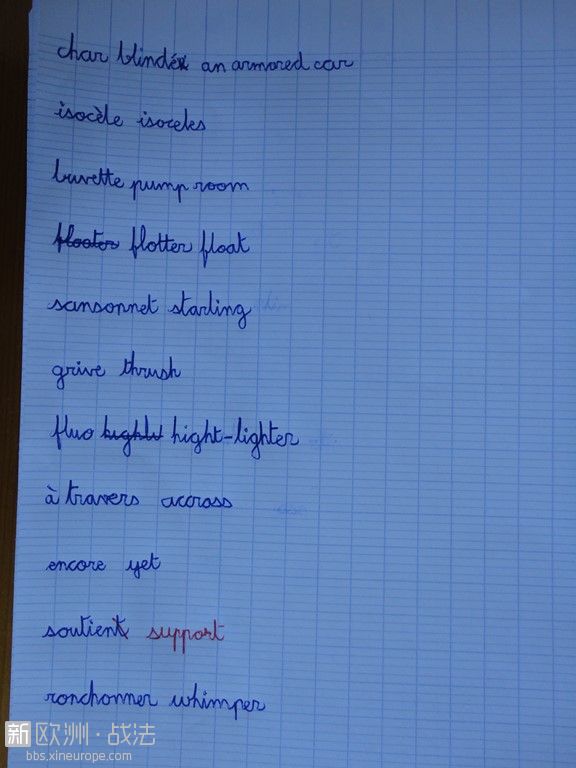 char blindé an armored car
isocèle isoceles
buvette pump room
floater flotter float
sansonnet starling
grive thrush
fluo highli hight-lighter
à travers accross
encore yet
soutient support
ronchonner whimper
新欧洲·战法
bbs.xineurope.com